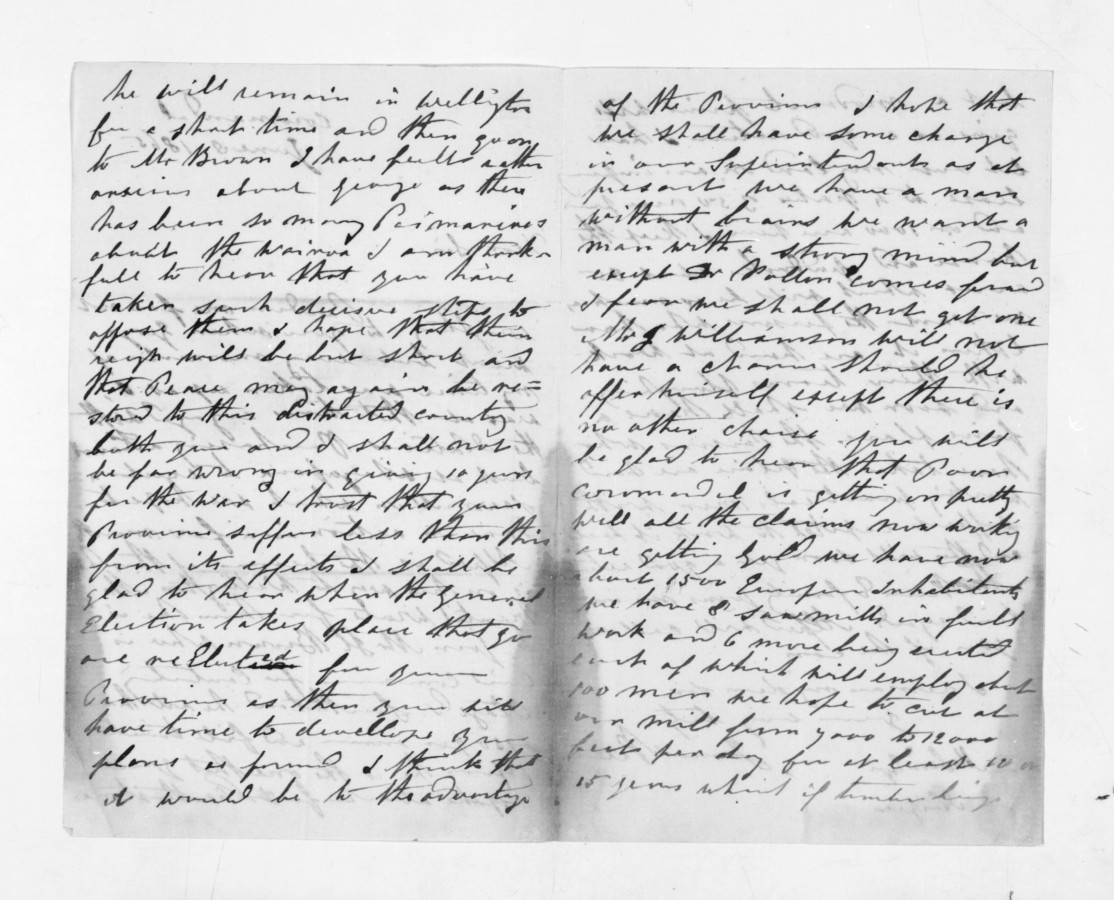 he will remain in Wellington
for a short time and then go on
to Mr Brown I have feelt rather
anxious about george as there
has been so many Pai marires
about the Wairoa I am thank-
full to hear that you have
taken such decisive steps to
oppose them I hope that their
reign will be but short and
that Peace may again be re=
stored to this distracted country
both you and I shall not
be far wrong in giving 10 years
for the War I trust that your
Province suffers less than this
from its effects I shall be
glad to hear when the general
Election takes place that you
are reElected for your
Province as then you will
have time to devellope your
plans as formed I think that
it would be to the advantage
of the Province I hope that
we shall have some change
in our Superintendents as at
present we have a man
without brains we want a
man with a strong mind but
except Dr Pollen comes forward
I fear we shall not get one
Mr J Williamson will not
have a chance should he
offer himself except there is
no other choise you will
be glad to hear that Poor
Coromandel is getting on pretty
well all the claims now working
are getting gold we have now
about 1500 European Inhabitants
we have 8 sawmills in full
work and 6 more being erected
each of which will employ about
100 men we hope to cut at
our mill from 9000 to 12000
feet per day for at least 10 or
15 years which if timber